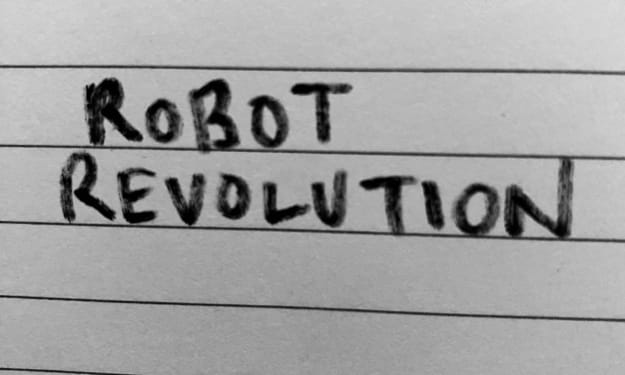 ROBOT
REVOLUTION